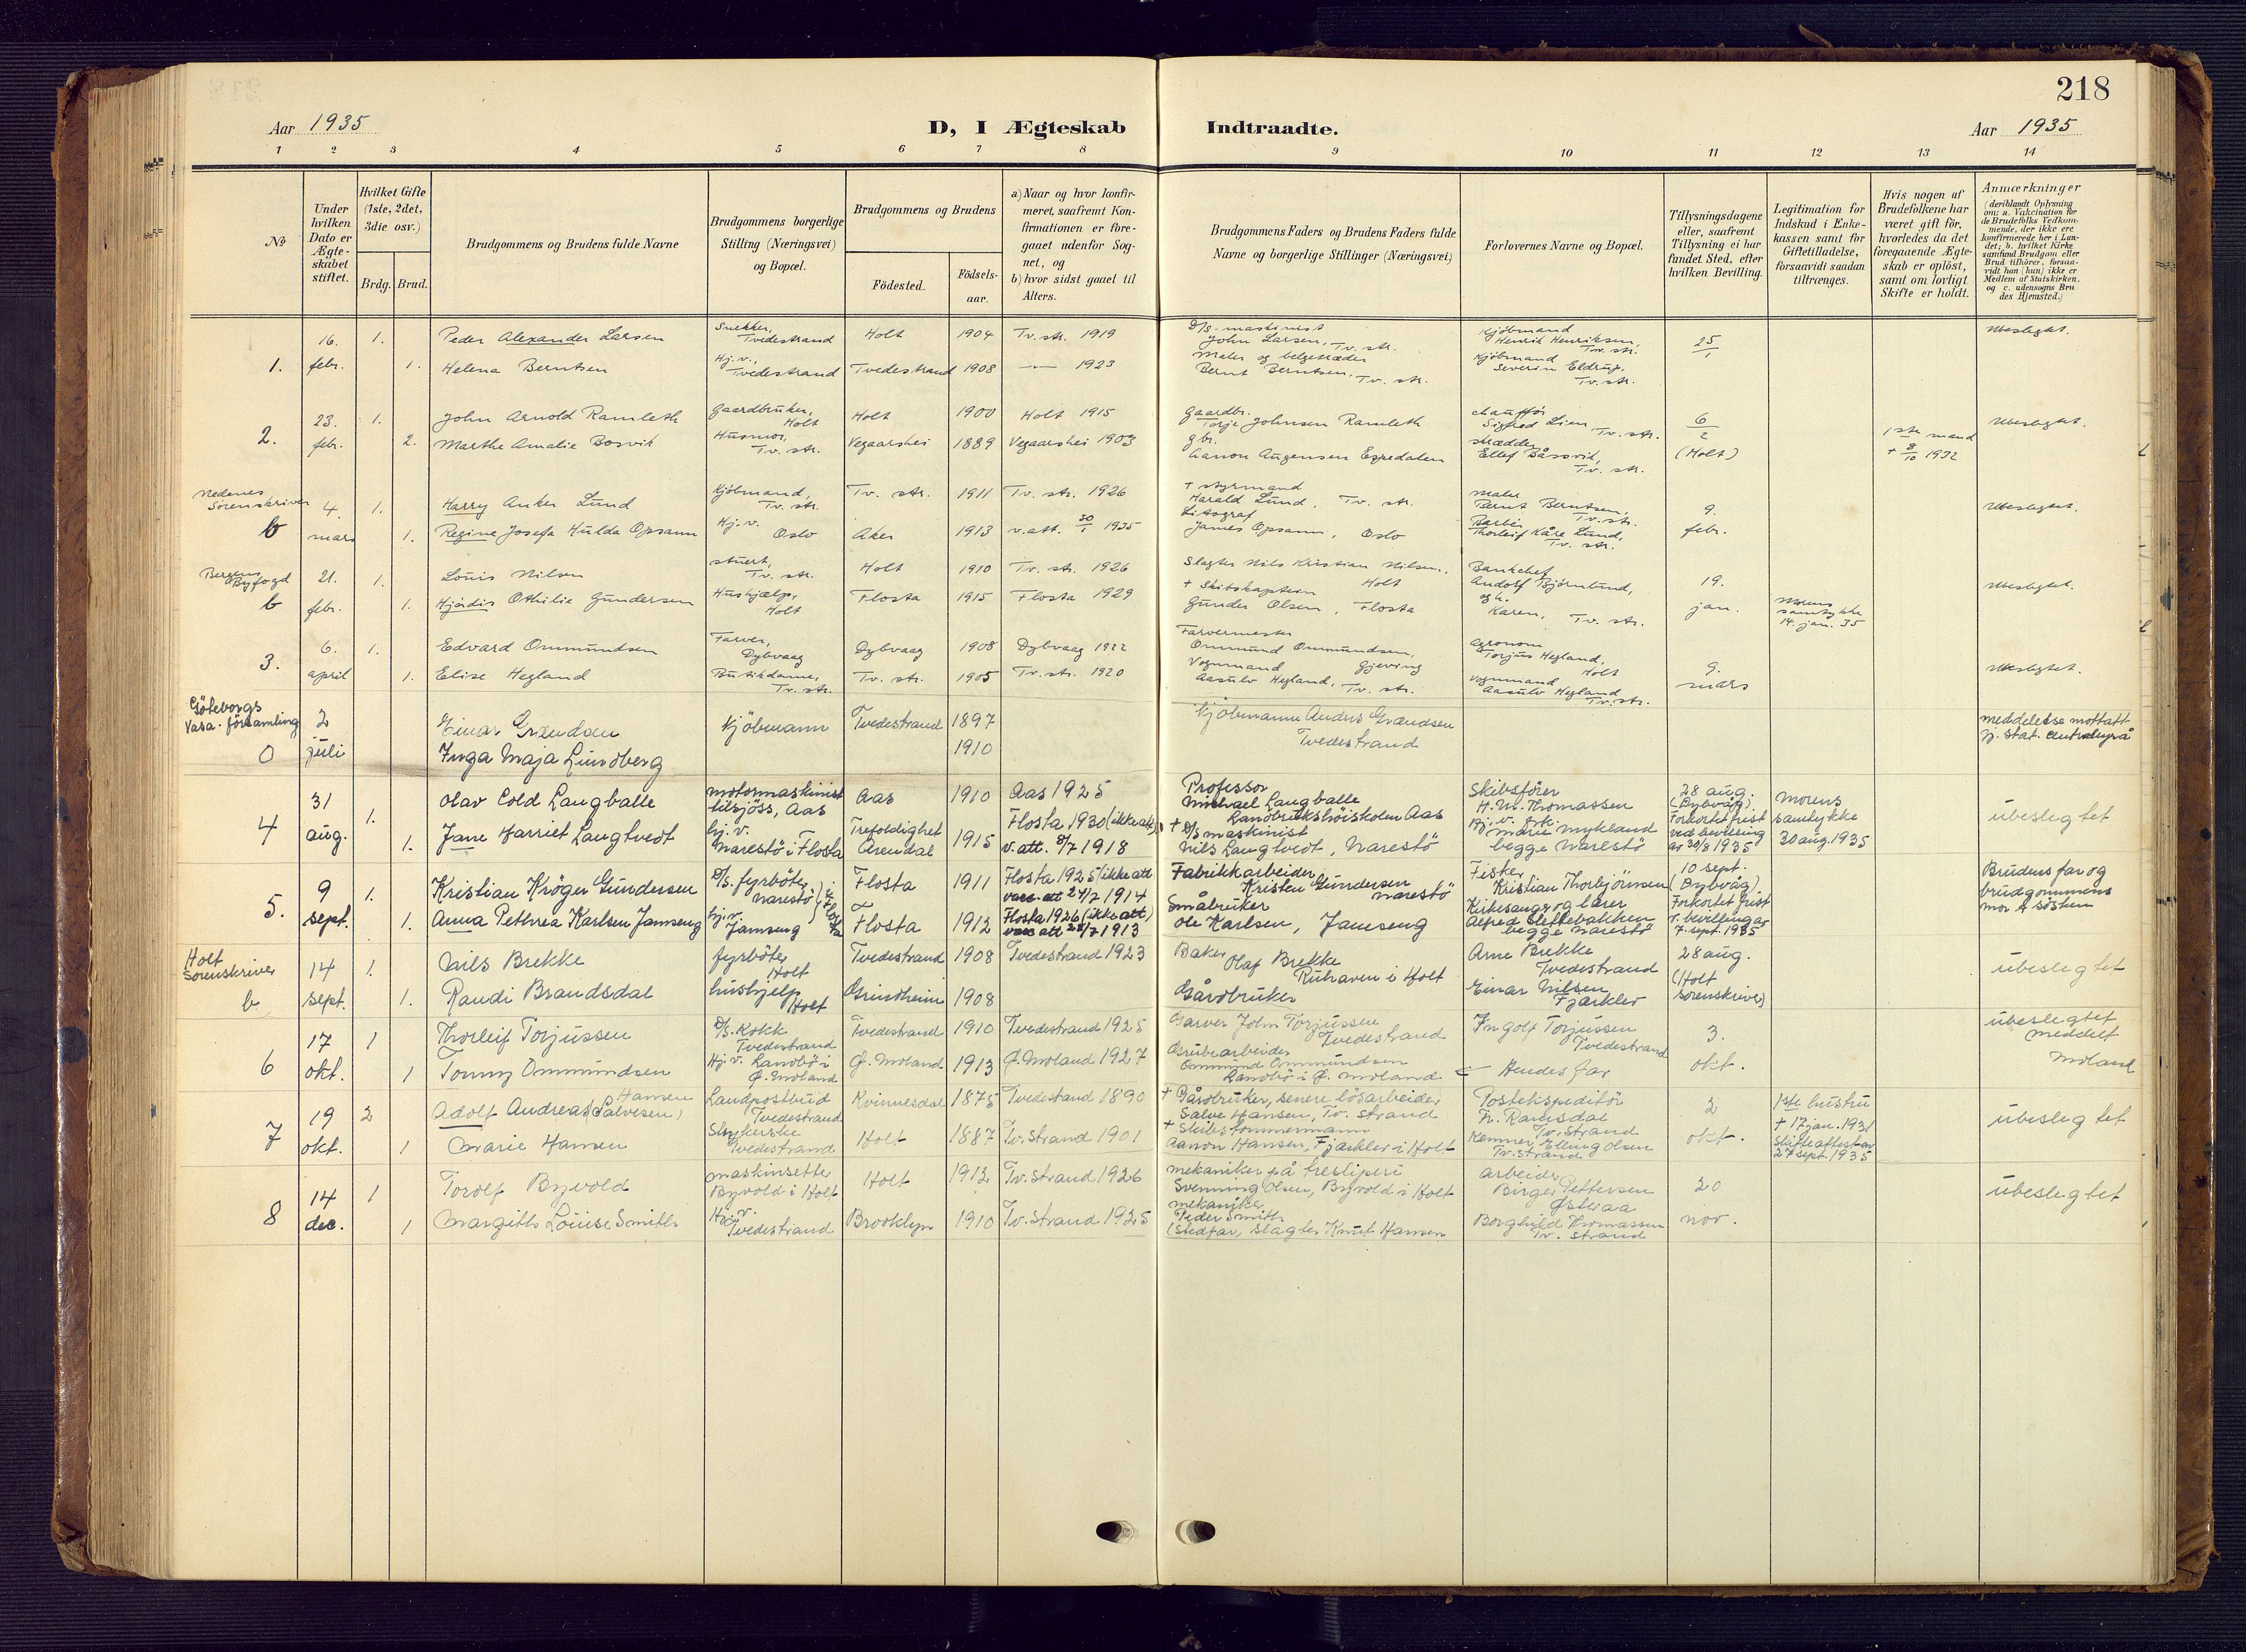 218
Aar 1935
D, I Ægteskab
Indtraadte.
Aar 1935
1 2 3 4 5 6 7 8 9 10 11 12 13 14
No
Under hvilken Dato er Ægteskabet stiftet.
Hvilket Gifte (1ste, 2det, 3die osv.)
Brdg. Brud.
Brudgommens og Brudens fulde Navne
Brudgommens borgerlige Stilling (Næringsvei) og Bopæl.
Brudgommens og Brudens
Fødested.
Fødsels-aar.
a) Naar og hvor konfirmeret, saafremt Konfirmationen er foregaaet udenfor Sognet, og
b) hvor sidst gaaet til Alters.
Brudgommens Faders og Brudens Faders fulde Navne og borgerlige Stillinger (Næringsvei)
Forlovernes Navne og Bopæl.
Tillysningsdagene eller, saafremt Tillysning ei har fundet Sted, efter hvilken Bevilling.
Legitimation for Indskud i Enkekassen samt for Giftetilladelse, forsaavidt saadan tiltrænges.
Hvis nogen af Brudefolkene har været gift før, hvorledes da det foregaaende Ægteskab er opløst, samt om lovligt Skifte er holdt.
Anmærkninger (deriblandt Oplysning om: a. Vakcination for de Brudefolks Vedkommende, der ikke ere konfirmerede her i Landet; b. hvilket Kirkesamfund Brudgom eller Brud tilhører, forsaavidt han (hun) ikke er Medlem af Statskirken, og c. udensogns Brudes Hjemsted.)
1. 16. febr. 1. Peder Alexander Larsen Snekker, Tvedestrand Holt 1904 Tv. str. 1919 D/S. maskinist John Larsen, Tv. str. Kjöbmand Henrik Henriksen, Tv. str. 25/1 Ubeslegtet.
1. Helena Berntsen Hj. v., Tvedestrand Tvedestrand 1908 — 1923 Maler og belgetræder Bernt Berntsen, Tv. str. Kjöbmand Severin Eldrup, Tv. str.
2. 23. febr. 1. John Arnold Ramleth Gaardbruker, Holt Holt 1900 Holt 1915 Gaardbr. Torje Johnsen Ramleth chauffør Sigfred Lien, Tv. str. 6/2 (Holt) Ubeslegtet.
2. Marthe Amalie Bosvik Husmor, Tv. str. Vegaarshei 1889 Vegaarshei 1903 gbr. Aanon Augensen Egredalen skrædder Ellef Båsvik, Tv. str. 1ste mand + 8/10 1932
Nedenes Sorenskriver b 4. mars 1. Harry Anker Lund Kjöbmand, Tv. str. Tv. str. 1911 Tv. str. 1926 + styrmand Harald Lund, Tv. str. Maler Bernt Berntsen, Tv. str. 9. febr. Ubeslegtet.
1. Regine Josefa Hulda Opsann Hj. v. Oslo Aker 1913 v. att. 30/1 1935 Litograf James Opsann, Oslo Barber Thorleif Kåre Lund, Tv. str.
Bergens Byfogd b 21. febr. 1. Louis Nilsen stuert, Tv. str. Holt 1910 Tv. str. 1926 Slagter Nils Kristian Nilsen, Holt Bankchef Andolf Björnlund, 19. jan. Ubeslegtet.
1. Hjördis Othilie Gundersen Hushjælp, Holt Flosta 1915 Flosta 1929 + Skibskaptein Gunder Olsen, Flosta og h. Karen, Tv. str. Morens samtykke 14. jan. 35
3. 6. april 1. Edvard Ommundsen Farver, Dybvaag Dybvaag 1908 Dybvaag 1922 Farvermester Ommund Ommundsen, Gjeving agronom Torjus Hegland, Holt 9. mars Ubeslegtet.
1. Elise Hegland Butikdame, Tv. str. Tv. str. 1905 Tv. str. 1920 Vognmand Aasulv Hegland, Tv. str. vognmand Aasulv Hegland Tv. str.
Göteborgs Vasa-församling 0 2 juli Einar Grændsen Kjöbmann Tvedestrand 1897 Kjöbmann Anders Grændsen Tvedestrand meddelelse mottatt gj. Stat. Centralbyrå
Inga Maja Lundberg 1910
4 31 aug. 1. Olav Cold Langballe motormaskinist tilsjöss, Aas Aas 1910 Aas 1925 Professor Michael Langballe Landbrukshöiskolen Aas Skibsförer H. M. Thomassen 28 aug. (Dybvåg) Forkortet frist ved bevilling av 30/8 1935 Morens samtykke 30 aug. 1935 übeslegtet
1. Jane Harriet Langtvedt hj. v. Narestö i Flosta Trefoldighet Arendal 1915 Flosta 1930 (ikke att.) v. att. 8/7 1918 + D/S maskinist Nils Langtvedt, Narestö Hj. v. frk. Marie Mykland begge Narestö
5. 9 sept. 1. Kristian Kröger Gundersen D/S. fyrböter Narestö Flosta 1911 Flosta 1925 (ikke att vacc. att 24/7 1914 Fabrikkarbeider Kristen Gundersen Narestö Fisker Kristian Thorbjörnsen 10 sept. (Dybvåg) Forkortet frist v. bevilling av 7. sept. 1935 Brudens far og brudgommens mor er søsken
1. Anna Pethrea Karlsen Jamseng hj. v. Jamseng i Flosta Flosta 1912 Flosta 1926 (ikke att) vacc att 28/7 1913 Småbruker Ole Karlsen, Jamseng Kirkesanger og lærer Alfred Kleftebakken begge Narestö
Holt Sorenskriver b 14 sept. 1. Nils Brekke fyrböter Holt Tvedestrand 1908 Tvedestrand 1923 Baker Olaf Brekke Ruhaven i Holt Arne Brekke Tvedestrand 28 aug. (Holt sorenskriver) übeslegtet
1. Randi Brandsdal hushjelp Holt Grindheim 1908 Gårdbruker Einar Nilsen Fjærklev
6 17 okt. 1 Thorleif Torjussen D/S. Kokk Tvedestrand Tvedestrand 1910 Tvedestrand 1925 Garver John Torjussen Tvedestrand Ingolf Torjussen Tvedestrand 3. okt. übeslegtet meddelt Moland
1 Tonny Ommundsen Hj. v. Landbö i Ø. Moland Ø. Moland 1913 Ø. Moland 1927 Grubearbeider Ommund Ommundsen Landbö i Ø. Moland Hendes far
7 19 okt. 2 Adolf Andreas (Salvesen) Hansen Landpostbud Tvedestrand Kvinnesdal 1875 Tvedestrand 1890 + Gårdbruker, senere lösarbeider Salve Hansen, Tv. Strand Postekspeditör Fr. Ramsdal Tv. Strand 2 okt. 1ste hustru + 17 jan. 1931 Skifteattest av 27 sept. 1935 übeslegtet
1 Marie Hansen Strykerske Tvedestrand Holt 1887 Tv. Strand 1901 + Skibstømmermann Aanon Hansen, Fjærklev i Holt Kemner Elling Olsen Tv. Strand
8 14 dec. 1 Torolf Byvold maskinsetter Byvold i Holt Holt 1912 Tv. Strand 1926 mekaniker på tresliperi Svenning Olsen, Byvold i Holt arbeider Birger Pettersen Østeraa 20 nov. übeslegtet
1 Margith Louise Smith Hj. v. Tvedestrand Brooklyn 1910 Tv. Strand 1925 mekaniker Peder Smith (stedfar, slagter Knut Hansen Borghild Thomassen Tv. Strand